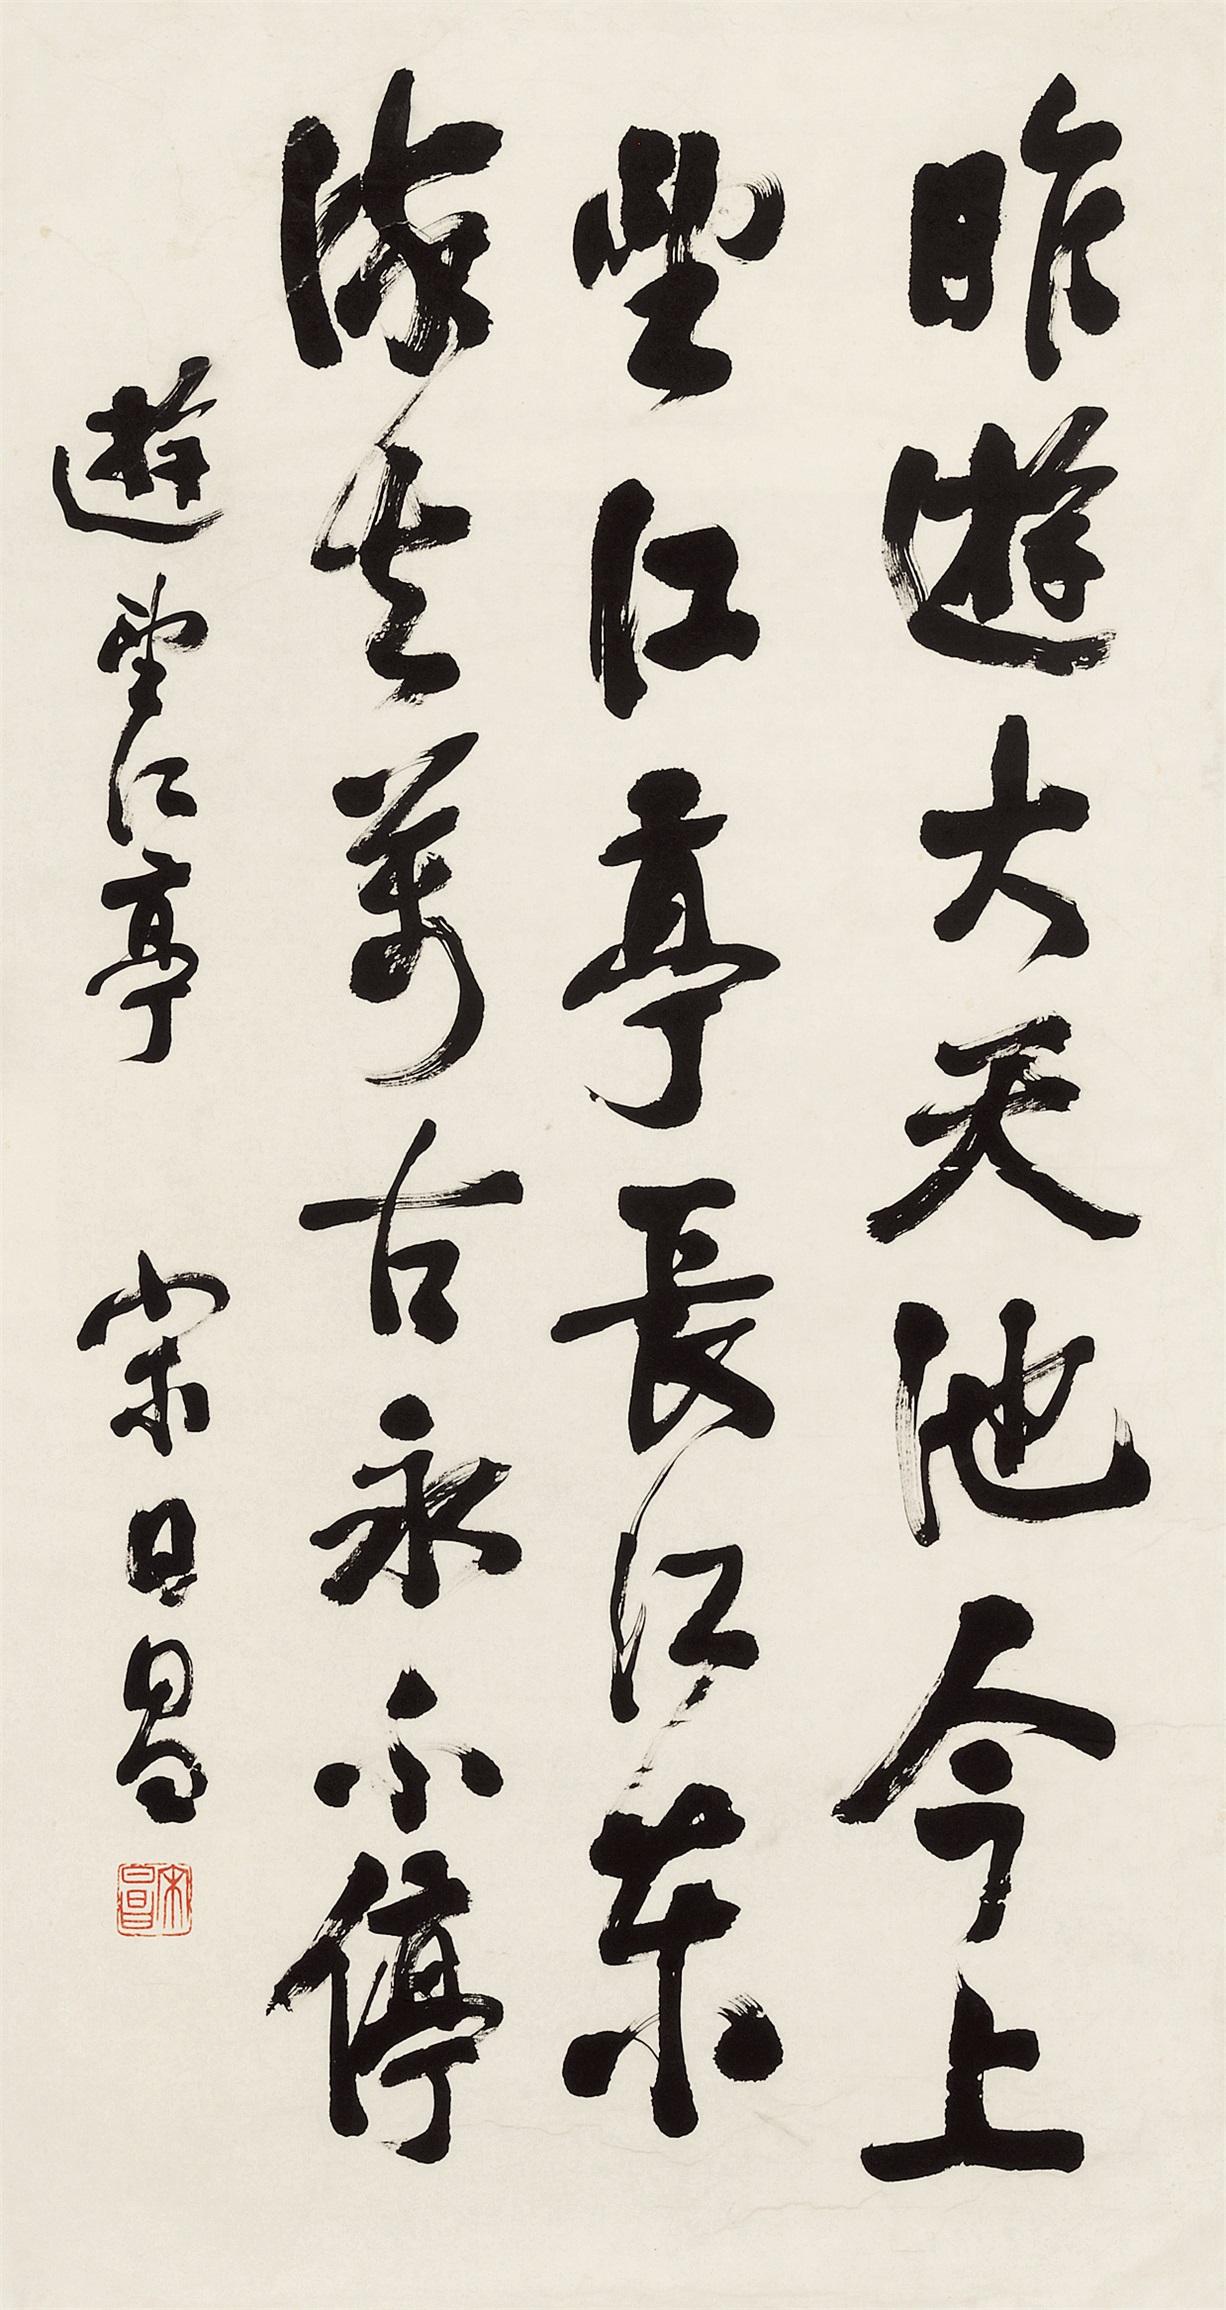 昨遊大天池今上
望江亭長江東
流去萬古永不停
遊望江亭 宋日昌
宋日昌